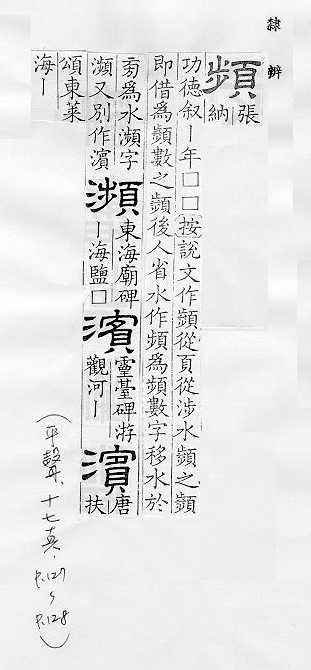 隸辨
頻
張
納
功德叙ー年□□按說文作瀕從頁從涉水瀕之瀕
即借為瀕數之瀕後人省水作頻為頻數字移水於
旁為水瀕字
瀕又別作濱
瀕
東海廟碑
ー海鹽□
濱
靈臺碑游
觀河ー
濱
唐
扶
頌東萊
海ー
(平聲、十七真、P.127~P.128)